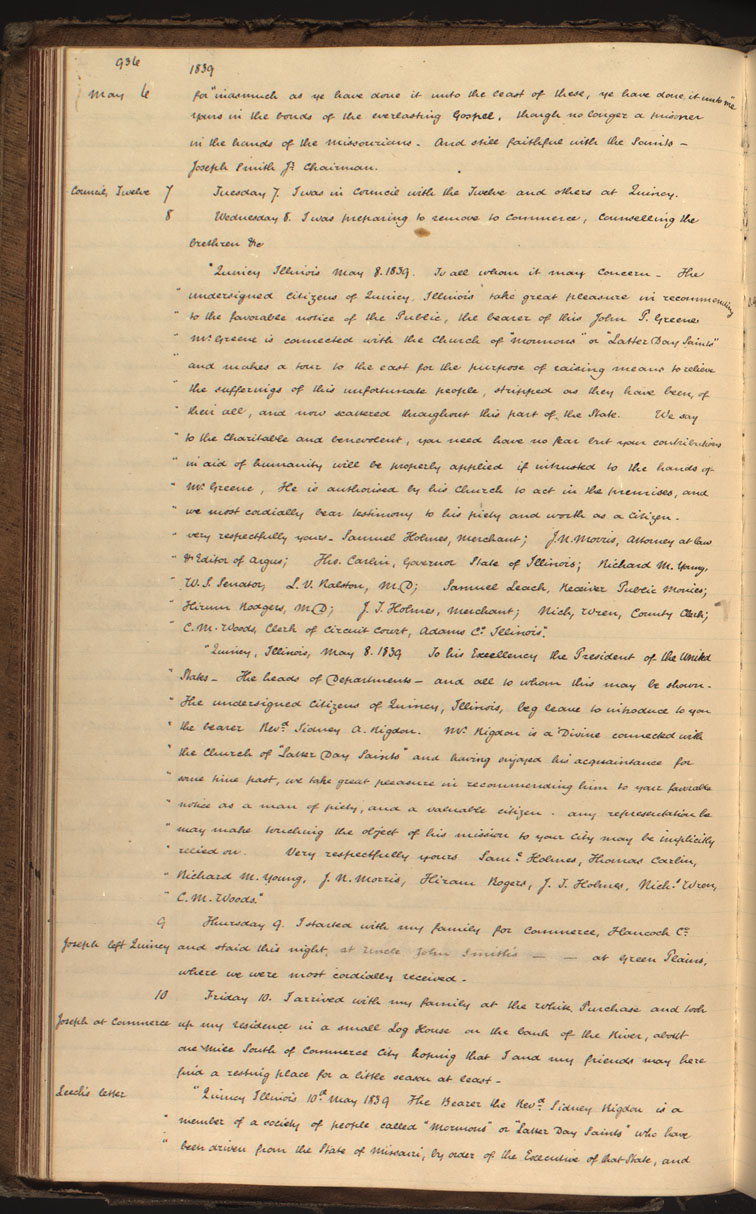 936
1839
May 6 for "inasmuch as ye have done it unto the least of these, ye have done it unto me"
yours in the bonds of the everlasting Gospel, though no longer a prisoner
in the hands of the Missourians - And still faithful with the Saints -
Joseph Smith Jr. Chairman.
Council, Twelve 7 Tuesday 7. I was in Council with the Twelve and others at Quincy.
8 Wednesday 8. I was preparing to remove to Commerce, counselling the
brethren &c
"Quincy Illinois May 8. 1839. To all whom it may concern - The
" undersigned citizens of Quincy Illinois take great pleasure in recommending
" to the favorable notice of the Public, the bearer of this John P. Greene
" Mr. Greene is connected with the Church of "Mormons" or "Latter Day Saints"
" and makes a tour to the east for the purpose of raising means to relieve
" the sufferings of this unfortunate people, stripped as they have been, of
" their all, and now scattered throughout this part of the State. We say
" to the charitable and benevolent, you need have no fear but your contributions
" in aid of humanity will be properly applied if intrusted to the hands of
" Mr. Greene, He is authorised by his Church to act in the premises, and
" we most cordially bear testimony to his piety and worth as a Citizen -
" very respectfully yours - Samuel Holmes, Merchant; J. N. Morris, Attorney at law
" & Editor of Argus; Tho. Carlin, Governor State of Illinois; Richard M. Young,
" U. S. Senator; L. V. Ralston, M.D; Samuel Leach, Receiver Public Monies;
" Hiram Rodgers, M.D; J. T. Holmes, Merchant; Nich, Wren, County Clerk;
" C. M. Woods, Clerk of Circuit Court, Adams Co. Illinois".
"Quincy, Illinois, May 8. 1839 To his Excellency the President of the United
" States - The heads of Departments - and all to whom this may be shown -
" The undersigned citizens of Quincy, Illinois, beg leave to introduce to you
" the bearer Revd. Sidney A. Rigdon. Mr. Rigdon is a Divine connected with
" the Church of "Latter Day Saints" and having enjoyed his acquaintance for
" some time past, we take great pleasure in recommending him to your favorable
" notice as a man of piety, and a valuable citizen - any representation he
" may make touching the object of his mission to your City may be implicitly
" relied on. Very respectfully yours Saml. Holmes, Thomas Carlin,
" Richard M. Young, J. N. Morris, Hiram Rogers, J. T. Holmes, Nichs. Wren,
" C. M. Woods."
9 Thursday 9. I started with my family for Commerce, Hancock Co.
Joseph left Quincy and staid this night, at Uncle John Smith's — — at Green Plains,
where we were most cordially received -
10 Friday 10. I arrived with my family at the White Purchase and took
Joseph at Commerce up my residence in a small Log House on the bank of the River, about
one mile South of Commerce City hoping that I and my friends may here
find a resting place for a little season at least -
Leech's letter "Quincy Illinois 10th. May 1839 The Bearer the Revd. Sidney Rigdon is a
" member of a society of people called "Mormons" or "Latter Day Saints" who have
" been driven from the State of Missouri, by order of the Executive of that State, and